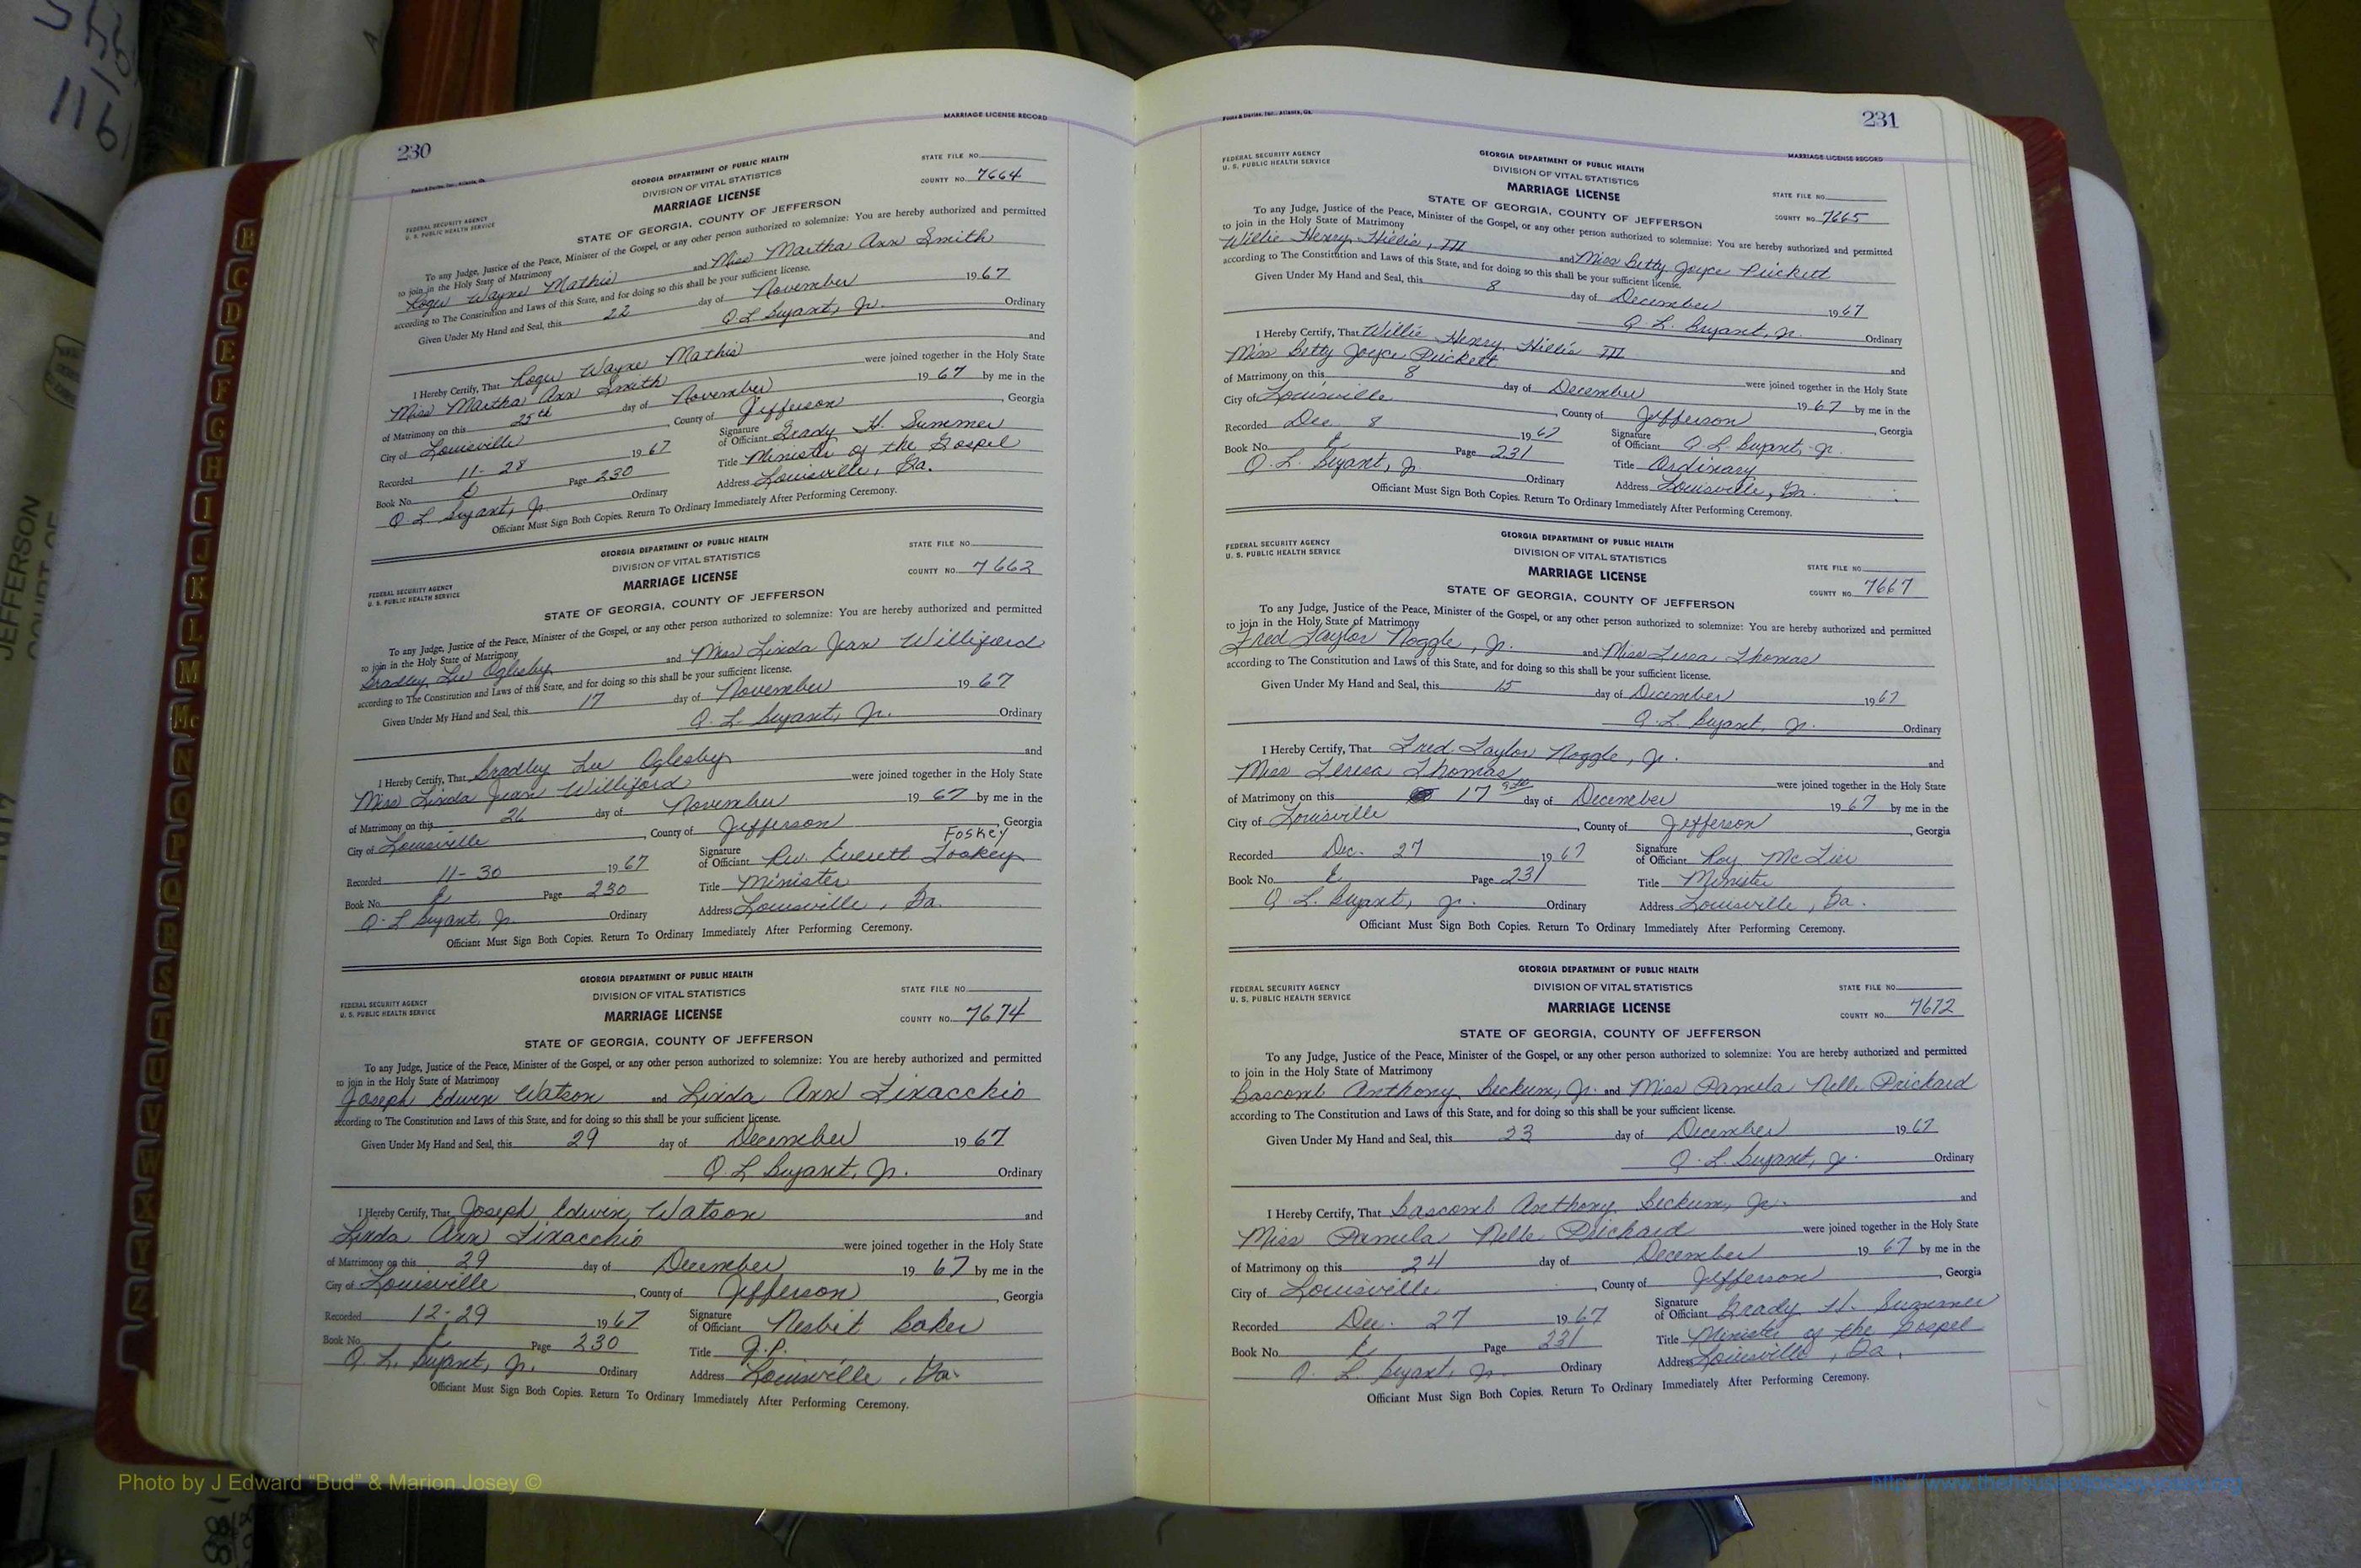 230
MARRIAGE LICENSE RECORD
GEORGIA DEPARTMENT OF PUBLIC HEALTH
DIVISION OF VITAL STATISTICS
MARRIAGE LICENSE
STATE OF GEORGIA, COUNTY OF JEFFERSON
FEDERAL SECURITY AGENCY
U. S. PUBLIC HEALTH SERVICE
STATE FILE NO.
COUNTY NO. 7664
To any Judge, Justice of the Peace, Minister of the Gospel, or any other person authorized to solemnize: You are hereby authorized and permitted
to join in the Holy State of Matrimony
Roger Wayne Mathis and Miss Martha Ann Smith
according to The Constitution and Laws of this State, and for doing so this shall be your sufficient license.
Given Under My Hand and Seal, this 22 day of November 1967
Q. L. Bryant, Jr. Ordinary
I Hereby Certify, That Roger Wayne Mathis and
Miss Martha Ann Smith were joined together in the Holy State
of Matrimony on this 25th day of November 1967 by me in the
City of Louisville, County of Jefferson, Georgia
Recorded 11-28 1967 Signature of Officiant Grady H. Summer
Book No. Page 230 Title Minister of the Gospel
Q. L. Bryant, Jr. Ordinary Address Louisville, Ga.
Officiant Must Sign Both Copies. Return To Ordinary Immediately After Performing Ceremony.
GEORGIA DEPARTMENT OF PUBLIC HEALTH
DIVISION OF VITAL STATISTICS
MARRIAGE LICENSE
STATE OF GEORGIA, COUNTY OF JEFFERSON
FEDERAL SECURITY AGENCY
U. S. PUBLIC HEALTH SERVICE
STATE FILE NO.
COUNTY NO. 7662
To any Judge, Justice of the Peace, Minister of the Gospel, or any other person authorized to solemnize: You are hereby authorized and permitted
to join in the Holy State of Matrimony
Bradley Lee Oglesby and Miss Linda Jean Williford
according to The Constitution and Laws of this State, and for doing so this shall be your sufficient license.
Given Under My Hand and Seal, this 17 day of November 1967
Q. L. Bryant, Jr. Ordinary
I Hereby Certify, That Bradley Lee Oglesby and
Miss Linda Jean Williford were joined together in the Holy State
of Matrimony on this 26 day of November 1967 by me in the
City of Louisville, County of Jefferson, Georgia
Foskey
Recorded 11-30 1967 Signature of Officiant Rev. Everett Foskey
Book No. Page 230 Title Minister
Q. L. Bryant, Jr. Ordinary Address Louisville, Ga.
Officiant Must Sign Both Copies. Return To Ordinary Immediately After Performing Ceremony.
GEORGIA DEPARTMENT OF PUBLIC HEALTH
DIVISION OF VITAL STATISTICS
MARRIAGE LICENSE
STATE OF GEORGIA, COUNTY OF JEFFERSON
FEDERAL SECURITY AGENCY
U. S. PUBLIC HEALTH SERVICE
STATE FILE NO.
COUNTY NO. 7674
To any Judge, Justice of the Peace, Minister of the Gospel, or any other person authorized to solemnize: You are hereby authorized and permitted
to join in the Holy State of Matrimony
Joseph Edwin Watson and Linda Ann Finacchio
according to The Constitution and Laws of this State, and for doing so this shall be your sufficient license.
Given Under My Hand and Seal, this 29 day of December 1967
Q. L. Bryant, Jr. Ordinary
I Hereby Certify, That Joseph Edwin Watson and
Linda Ann Finacchio were joined together in the Holy State
of Matrimony on this 29 day of December 1967 by me in the
City of Louisville, County of Jefferson, Georgia
Recorded 12-29 1967 Signature of Officiant Nesbit Baker
Book No. Page 230 Title J.P.
Q. L. Bryant, Jr. Ordinary Address Louisville, Ga.
Officiant Must Sign Both Copies. Return To Ordinary Immediately After Performing Ceremony.
231
MARRIAGE LICENSE RECORD
FEDERAL SECURITY AGENCY
U. S. PUBLIC HEALTH SERVICE
GEORGIA DEPARTMENT OF PUBLIC HEALTH
DIVISION OF VITAL STATISTICS
MARRIAGE LICENSE
STATE OF GEORGIA, COUNTY OF JEFFERSON
STATE FILE NO.
COUNTY NO. 7665
To any Judge, Justice of the Peace, Minister of the Gospel, or any other person authorized to solemnize: You are hereby authorized and permitted
to join in the Holy State of Matrimony
Willie Henry Hillis, III and Miss Betty Joyce Prickett
according to The Constitution and Laws of this State, and for doing so this shall be your sufficient license.
Given Under My Hand and Seal, this 8 day of December 1967
Q. L. Bryant, Jr. Ordinary
I Hereby Certify, That Willie Henry Hillis III and
Miss Betty Joyce Prickett were joined together in the Holy State
of Matrimony on this 8 day of December 1967 by me in the
City of Louisville, County of Jefferson, Georgia
Recorded Dec. 8 1967 Signature of Officiant Q. L. Bryant, Jr.
Book No. Page 231 Title Ordinary
Q. L. Bryant, Jr. Ordinary Address Louisville, Ga.
Officiant Must Sign Both Copies. Return To Ordinary Immediately After Performing Ceremony.
FEDERAL SECURITY AGENCY
U. S. PUBLIC HEALTH SERVICE
GEORGIA DEPARTMENT OF PUBLIC HEALTH
DIVISION OF VITAL STATISTICS
MARRIAGE LICENSE
STATE OF GEORGIA, COUNTY OF JEFFERSON
STATE FILE NO.
COUNTY NO. 7667
To any Judge, Justice of the Peace, Minister of the Gospel, or any other person authorized to solemnize: You are hereby authorized and permitted
to join in the Holy State of Matrimony
Fred Taylor Noggle, Jr. and Miss Teresa Thomas
according to The Constitution and Laws of this State, and for doing so this shall be your sufficient license.
Given Under My Hand and Seal, this 15 day of December 1967
Q. L. Bryant, Jr. Ordinary
I Hereby Certify, That Fred Taylor Noggle, Jr. and
Miss Teresa Thomas were joined together in the Holy State
of Matrimony on this 17 day of December 1967 by me in the
City of Louisville, County of Jefferson, Georgia
Recorded Dec. 27 1967 Signature of Officiant Roy McTier
Book No. Page 231 Title Minister
Q. L. Bryant, Jr. Ordinary Address Louisville, Ga.
Officiant Must Sign Both Copies. Return To Ordinary Immediately After Performing Ceremony.
FEDERAL SECURITY AGENCY
U. S. PUBLIC HEALTH SERVICE
GEORGIA DEPARTMENT OF PUBLIC HEALTH
DIVISION OF VITAL STATISTICS
MARRIAGE LICENSE
STATE OF GEORGIA, COUNTY OF JEFFERSON
STATE FILE NO.
COUNTY NO. 7672
To any Judge, Justice of the Peace, Minister of the Gospel, or any other person authorized to solemnize: You are hereby authorized and permitted
to join in the Holy State of Matrimony
Bascomb Anthony Beckum, Jr. and Miss Pamela Nelle Prichard
according to The Constitution and Laws of this State, and for doing so this shall be your sufficient license.
Given Under My Hand and Seal, this 23 day of December 1967
Q. L. Bryant, Jr. Ordinary
I Hereby Certify, That Bascomb Anthony Beckum, Jr. and
Miss Pamela Nelle Prichard were joined together in the Holy State
of Matrimony on this 24 day of December 1967 by me in the
City of Louisville, County of Jefferson, Georgia
Recorded Dec. 27 1967 Signature of Officiant Grady H. Summer
Book No. Page 231 Title Minister of the Gospel
Q. L. Bryant, Jr. Ordinary Address Louisville, Ga.
Officiant Must Sign Both Copies. Return To Ordinary Immediately After Performing Ceremony.
JEFFERSON
Photo by J Edward “Bud” & Marion Josey ©